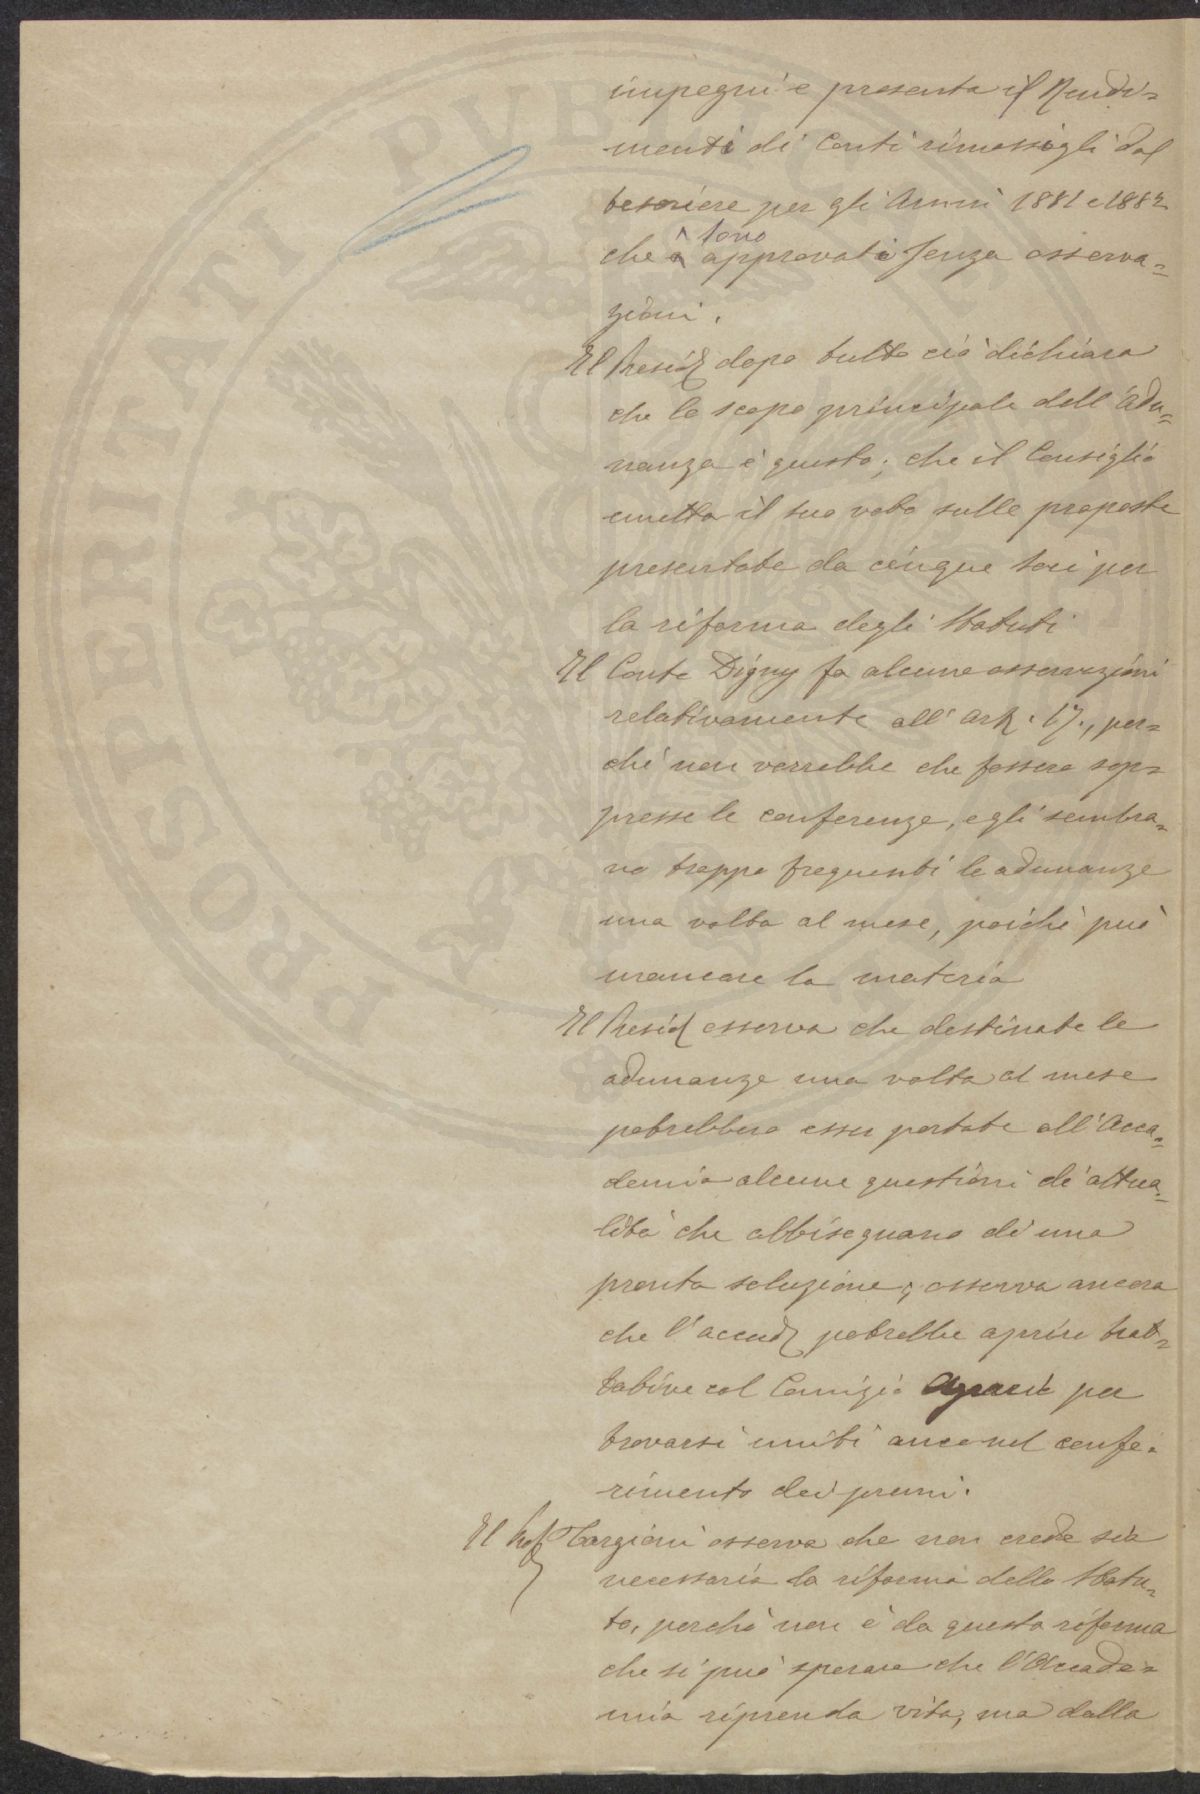 impegni e presenta il Rendi=
menti di Conti rimossigli dal
tesoriere per gli Anni 1881 e 1882
che sono approvati senza osserva=
zioni.
Il Presid dopo tutto ciò dichiara
che lo scopo principale dell'adu=
nanza è questo; che il Consiglio
emetta il suo voto sulle proposte
presentate da cinque soci per
la riforma degli Statuti
Il Conte Digny fa alcune osservazioni
relativamente all'art. 17., per=
chè non vorrebbe che fossero sop=
presse le conferenze, e gli sembra=
no troppo frequenti le adunanze
una volta al mese, poichè può
mancare la materia
Il Presid osserva che destinate le
adunanze una volta al mese
potrebbero esser portate all'Acca=
demia alcune questioni di attua=
lità che abbisognano di una
pronta soluzione; osserva ancora
che l'accad potrebbe aprire trat=
tative col Comizio Agrario per
trovarsi uniti anco nel confe=
rimento dei premi.
Il Prof Targioni osserva che non crede sia
necessaria la riforma dello Statu=
to, perchè non è da questa riforma
che si può sperare che l'Accade=
mia riprenda vita, ma dalla
PROSPERITATI PVBLICAE